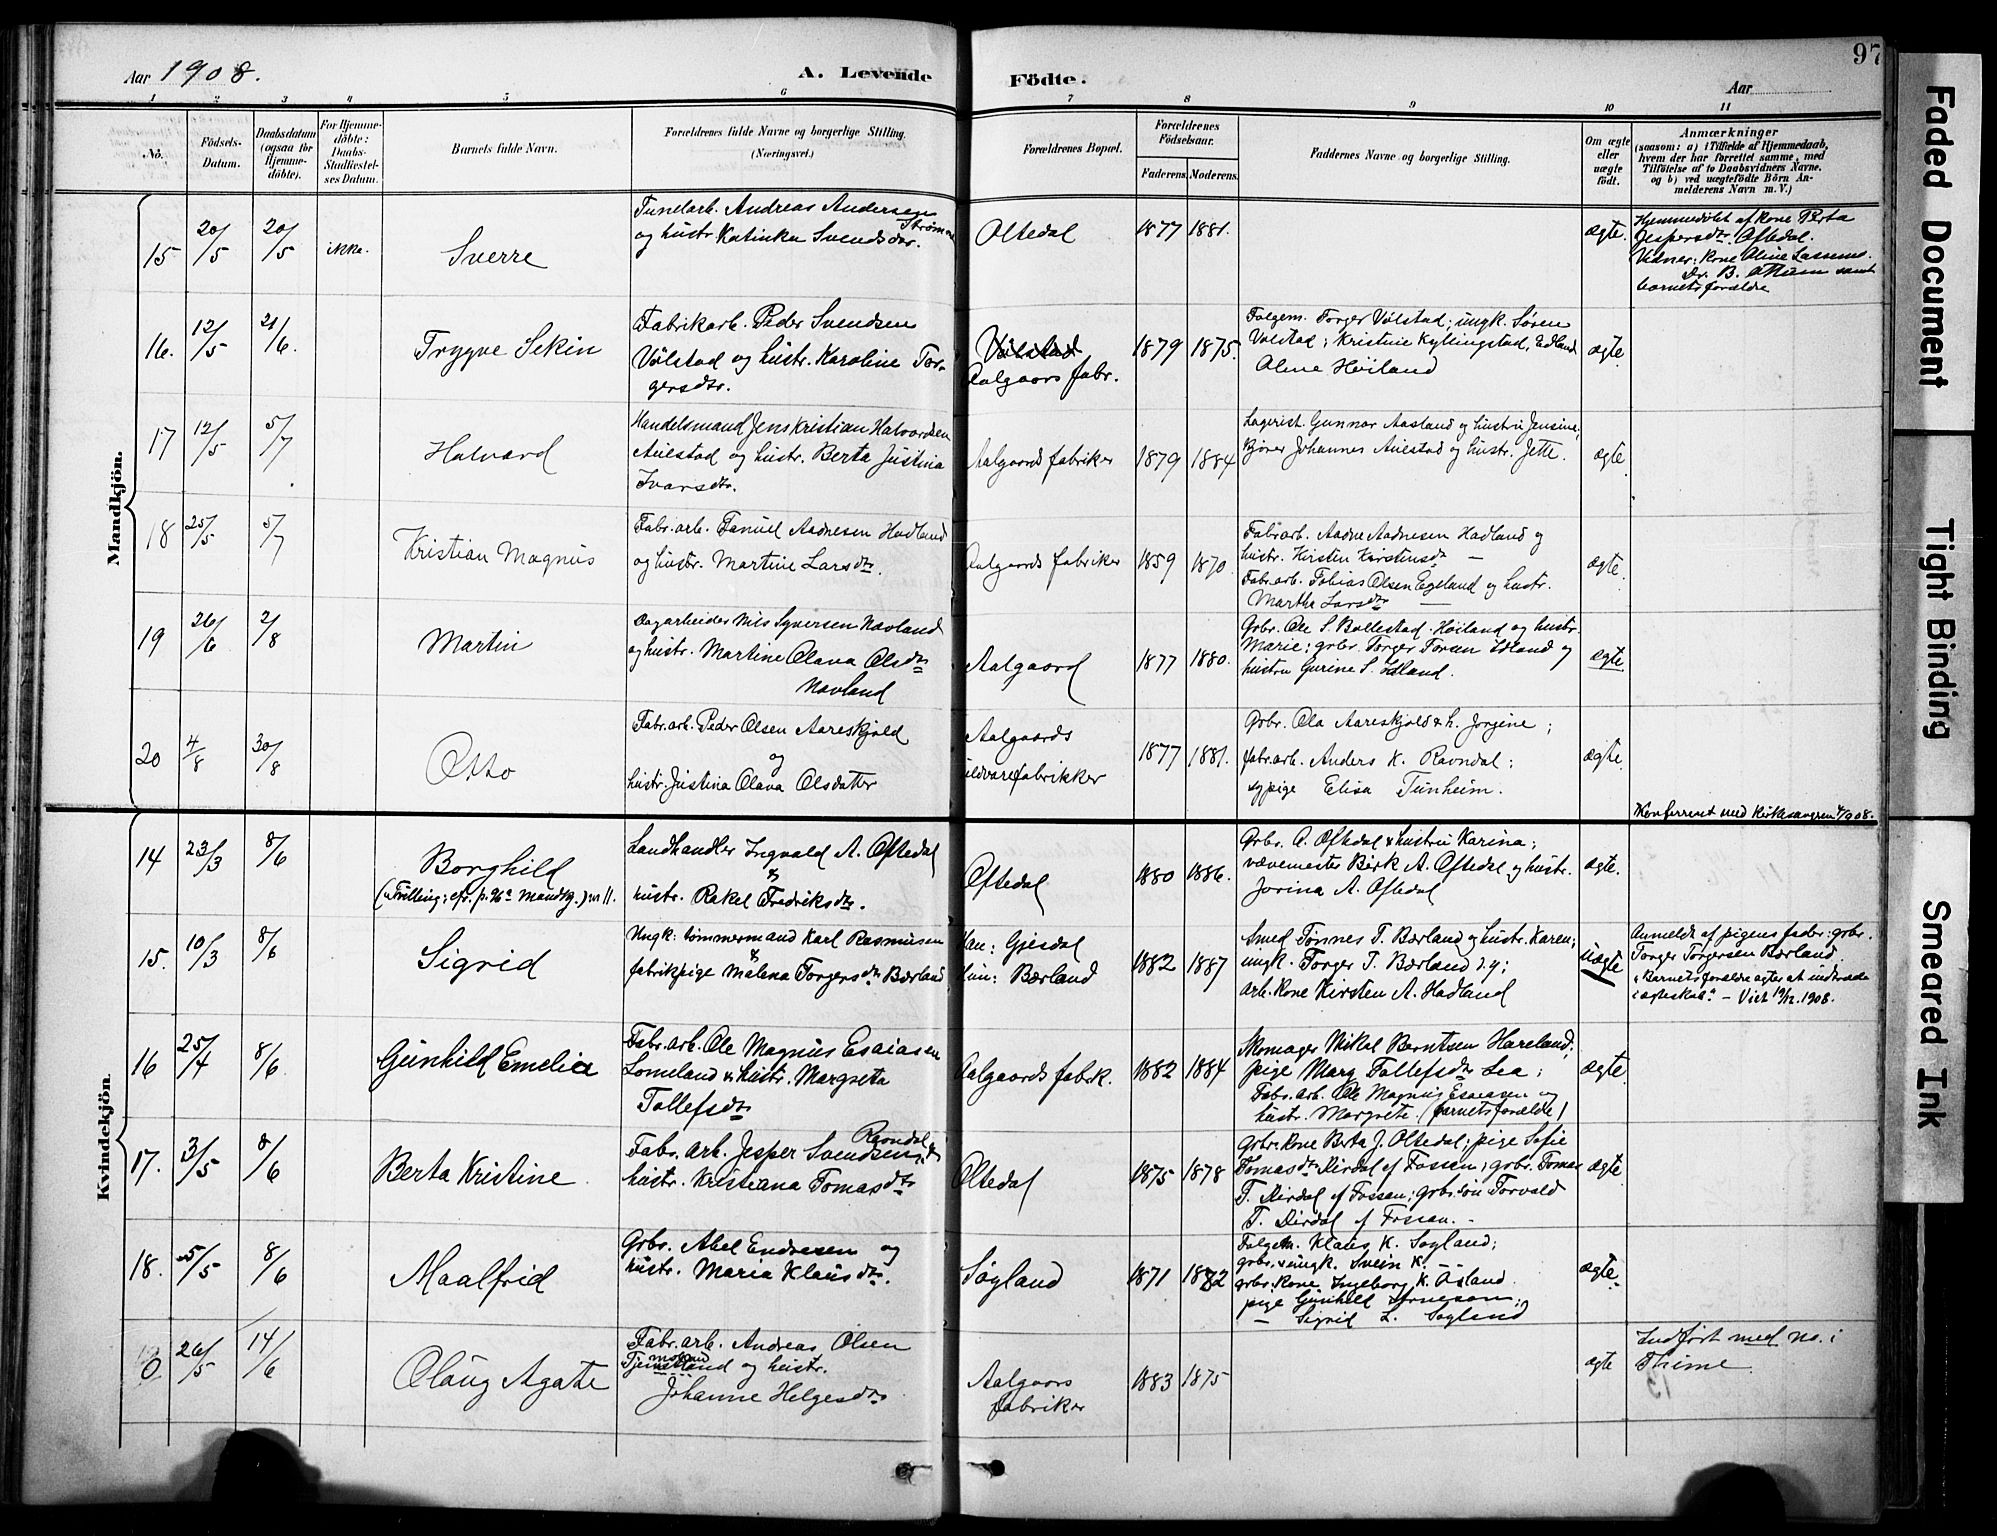 97
Aar 1908.
A. Levende Födte.
Aar
1 2 3 4 5 6 7 8 9 10 11
No.
Födsels-Datum.
Daabsdatum (ogsaa for Hjemme-döbte).
For Hjemme-döbte: Daabs-Stadfæstelses Datum.
Barnets fulde Navn.
Forældrenes fulde Navne og borgerlige Stilling. (Næringsvei.)
Forældrenes Bopæl.
Forældrenes Födselsaar.
Faderens. Moderens.
Faddernes Navne og borgerlige Stilling.
Om ægte eller uægte födt.
Anmærkninger
(saasom: a) i Tilfælde af Hjemmedaab, hvem der har forrettet samme, med Tilföielse af to Daabsvidners Navne. og b) ved uægtefödte Börn Anmelderens Navn m. V.)
Mandkjön.
15 20/5 20/5 ikke. Sverre
Tunelarb. Andreas Andersen Strøm
og hustr. Katinka Svendsdtr.
Oltedal 1877 1881. ægte.
Hjemmedøbt af kone Berta
Jespersdtr. Oftedal.
Vidner: Kone Aline
Dr. B. samt
barnets forældre
16. 12/5 21/6 Trygve Sekin
Fabrikarb. Peder Svendsen
Vølstad og hustr. Karoline Tor-
gersdtr.
Vølstad
Aalgaars fabr.
1879 1875.
Folgem. Torger Vølstad; ungk. Søren
Vølstad; Kristine Kyllingstad, Edland
Aline Høiland
ægte.
17 12/5 5/7 Halvard
Handelsmand Jens Kristian Halvardsen
Auestad og hustr. Berta Justina
Ivarsdtr.
Aalgaards fabriker 1879 1884
Lagerist. Gunnar Aasland og hustru Jensine;
Johannes Auestad og hustr. Jette.
ægte.
18 25/5 5/7 Kristian Magnus
Fabr.arb. Tanuel Aadnesen Hadland
og hustr. Martine Larsdtr.
Aalgaards fabriker 1859 1870.
Fabr.arb. Aadne Aadnesen Hadland og
hustr. Kirsten Karstensdtr. —
Fabr.arb. Tobias Olsen Egeland og hustr.
Martha Larsdtr. —
ægte.
19 26/6 2/8 Martin
Dagarbeider Nils Syversen Navland
og hustr. Martine Olava Olsdtr
Navland
Aalgaard 1877 1880.
Grbr. Ole S. Bollestad. Høiland og hustr.
Marie; grbr. Torger Torsen Edland og
hustru Gurine S. Edland.
ægte.
20 4/8 30/8 Otto
Fabr.arb. Peder Olsen Aareskjold
og
hustr. Justina Olava Olsdatter
Aalgaards
uldvarefabrikker
1877 1881.
Grbr. Ola Aareskjold & h. Jorgine;
fabr.arb. Anders K. Ravndal;
sypige Elisa Tunheim.
ægte.
Konfereret med Kirkesangeren 4/9 08.
Kvindekjön.
14 23/3 8/6 Borghild
(Tvilling; cfr. p. 96 a Mandkj.) nr 11.
Landhandler Ingvald A. Oftedal
&
hustr. Rakel Fredriksdtr.
Oftedal 1880 1886.
Grbr. A. Oftedal & hustru Karina;
vævemester Birk A. Oftedal og hustr.
Jorina A. Oftedal
ægte.
15. 10/3 8/6 Sigrid
Ungk: tømmermand Karl Rasmusen
&
fabrikpige Malena Torgersdtr Bærland
Han: Gjesdal
Hun: Bærland
1882 1887
Smed Tønnes T. Bærland & hustr. Karen;
ungk. Torger T. Bærland 2. y;
arb. kone Kirsten A. Hadland
uægte
Anmeldt af pigens fader: grbr.
Torger Torgersen Bærland.
"Barnets forældre agter at indtræde
i ægteskab." — Viet 19/12. 1908.
16 25/4 8/6 Gunhild Emelie
Fabr.arb. Ole Magnus Esaiasen
Lomeland & hustr. Margreta
Tollefsdtr
Aalgaards fabrik. 1882 1884
Skomager Mikal Berntsen Hareland;
pige Marg Tollefsdtr Lea;
Fabr.arb. Ole Magnus Esaiasen og
hustr. Margrete. (barnets forældre)
ægte.
17. 3/5 8/6 Berta Kristine
Fabr. arb. Jesper Svendsen Ravndal &
hustr. Kristiana Tomasdtr
Oltedal 1875 1878
Grbr.kone Berta J. Oltedal; pige Sofie
Tomasdtr. Dirdal af Fossen; grbr. Tomas
T. Dirdal af Fossan; grbr.søn Torvald
T. Dirdal af Fossan. –
ægte.
18. 5/5 8/6 Maalfrid
Grbr. Abel Endresen og
hustr. Maria Klausdtr.
Søyland 1871 1882
Folgem. Klaus K. Søyland;
grbr. & ungk. Svein K. – –
grbr.kone Ingeborg K. Asland.
pige Gunhild Arnesen;
— Sigrid L. Søyland
ægte.
0 26/5 14/6 Olaug Agate
Fabr. arb. Andreas Olsen
og hustr.
Johanne Helgesdtr
Aalgaars
fabriker
1883 1875 ægte
Indført med no. i
Thime
13
Faded Document
Tight Binding
Smeared Ink